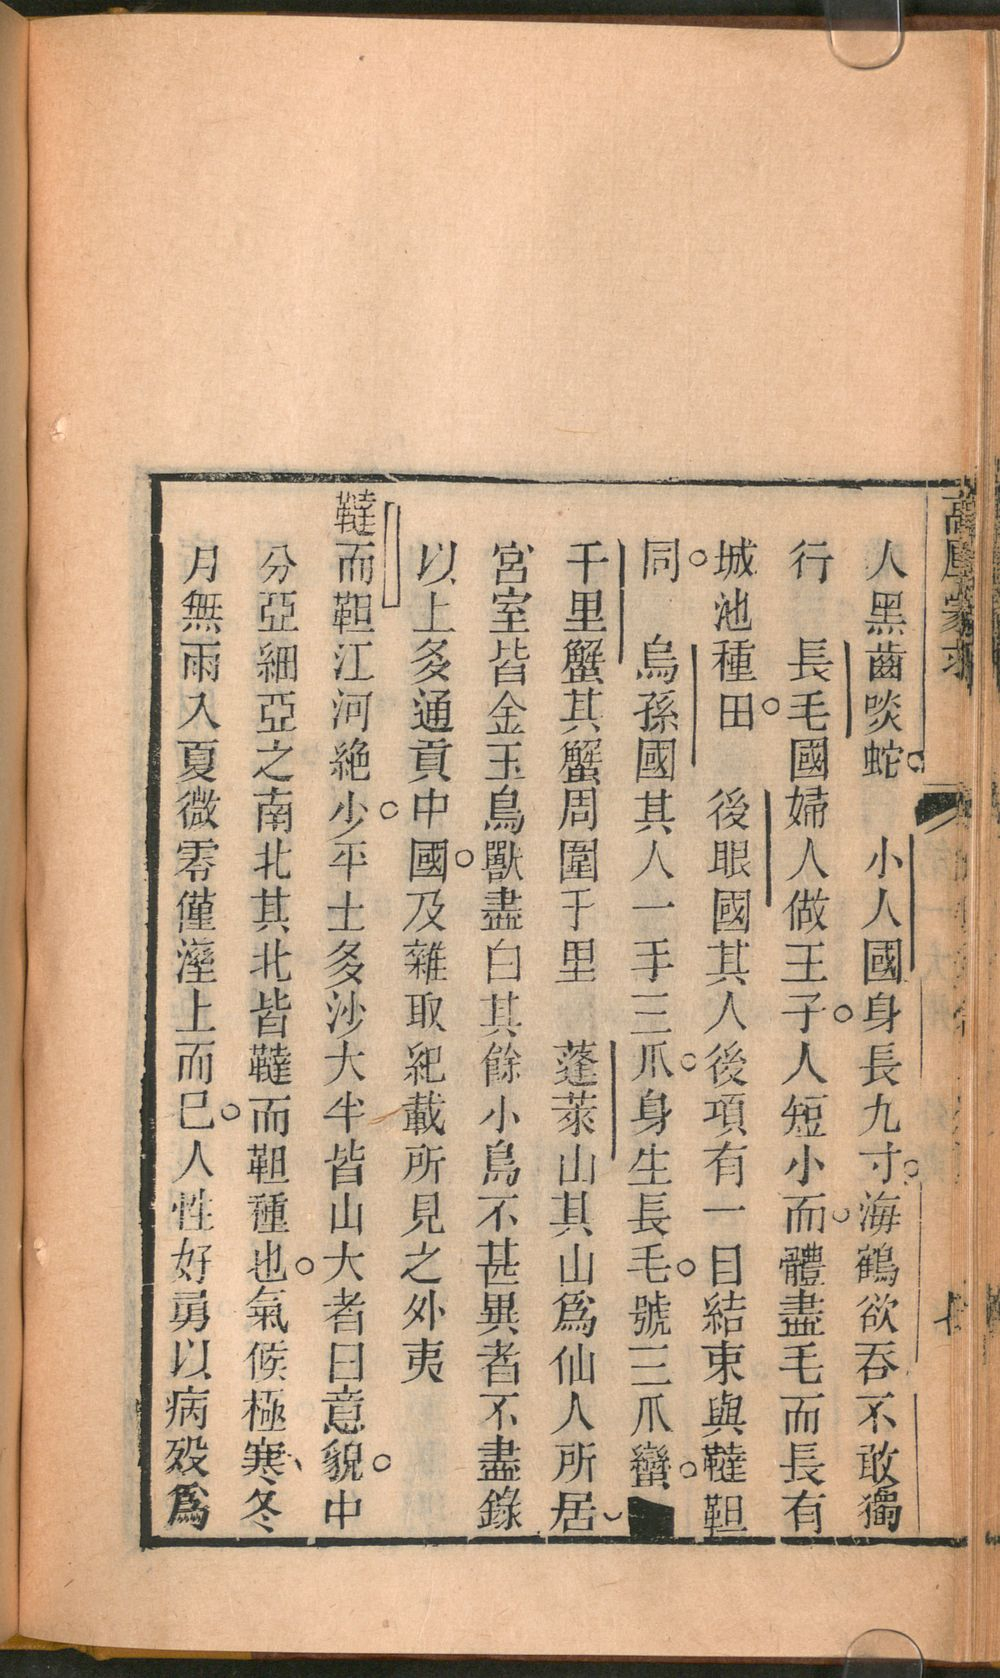 人黑齒啖蛇。　小人國身長九寸。海鶴欲吞不敢獨
行　長毛國婦人做王子。人短小而體盡毛而長有
城池種田。　後眼國其人後項有一目結束與韃靼
同。　烏孫國其人一手三爪。身生長毛。號三爪蠻。
千里蟹其蟹周圍千里　蓬萊山其山爲仙人所居
宮室皆金玉鳥獸盡白其餘小島不甚異者不盡錄
以上多通貢中國。及雜取紀載所見之外夷
韃而靼江河絶少。平土多沙大半皆山大者曰意貌。中
分亞細亞之南北其北皆韃而靼種也。氣候極寒、冬
月無雨入夏微零僅溼土而已。人性好勇以病歿爲